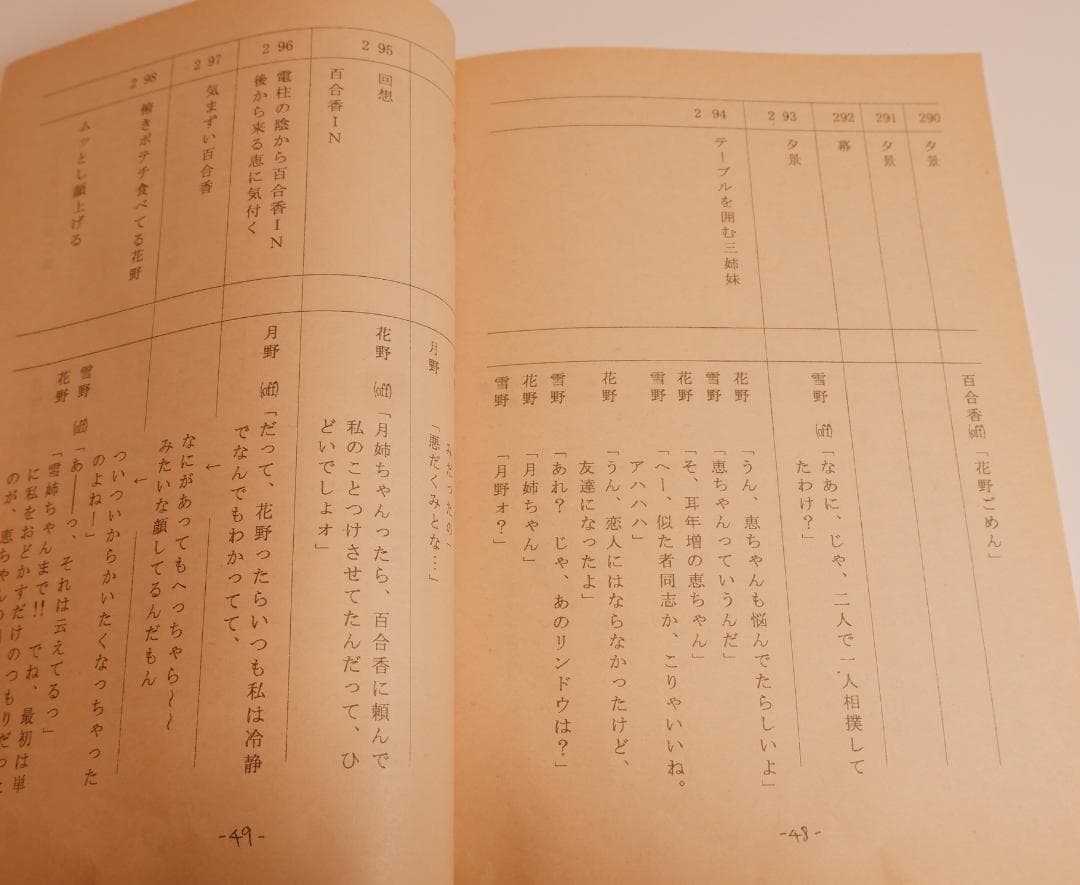 290
夕景
291
夕景
292
幕
293
夕景
294
テーブルを囲む三姉妹
百合香(off)「花野ごめん」
雪野(off)「なあに、じゃ、二人で一人相撲して
たわけ？」
花野「うん、恵ちゃんも悩んでたらしいよ」
雪野「恵ちゃんっていうんだ」
花野「そ、耳年増の恵ちゃん」
雪野「へー、似た者同志か、こりゃいいね。
アハハハ」
花野「うん、恋人にはならなかったけど、
友達になったよ」
雪野「あれ？じゃ、あのリンドウは？」
花野「月姉ちゃん」
雪野「月野ォ？」
-48-
295
回想
百合香IN
296
電柱の陰から百合香IN
後から来る恵に気付く
297
気まずい百合香
298
俯きポテチ食べてる花野
ムッとし顔上げる
月野「悪だくみとな…」
花野(off)「月姉ちゃんったら、百合香に頼んで
私のことつけさせてたんだって、ひ
どいでしょォ」
月野(off)「だって、花野ったらいつも私は冷静
でなんでもわかってて、
←
なにがあってもへっちゃら〜〜
みたいな顔してるんだもん
←
ついついからかいたくなっちゃった
のよねー」
雪野(off)「あ——っ、それは云えてるっ」
花野「雪姉ちゃんまで!!でね、最初は単
に私をおどかすだけのつもりだった
のが、恵ちゃん
-49-